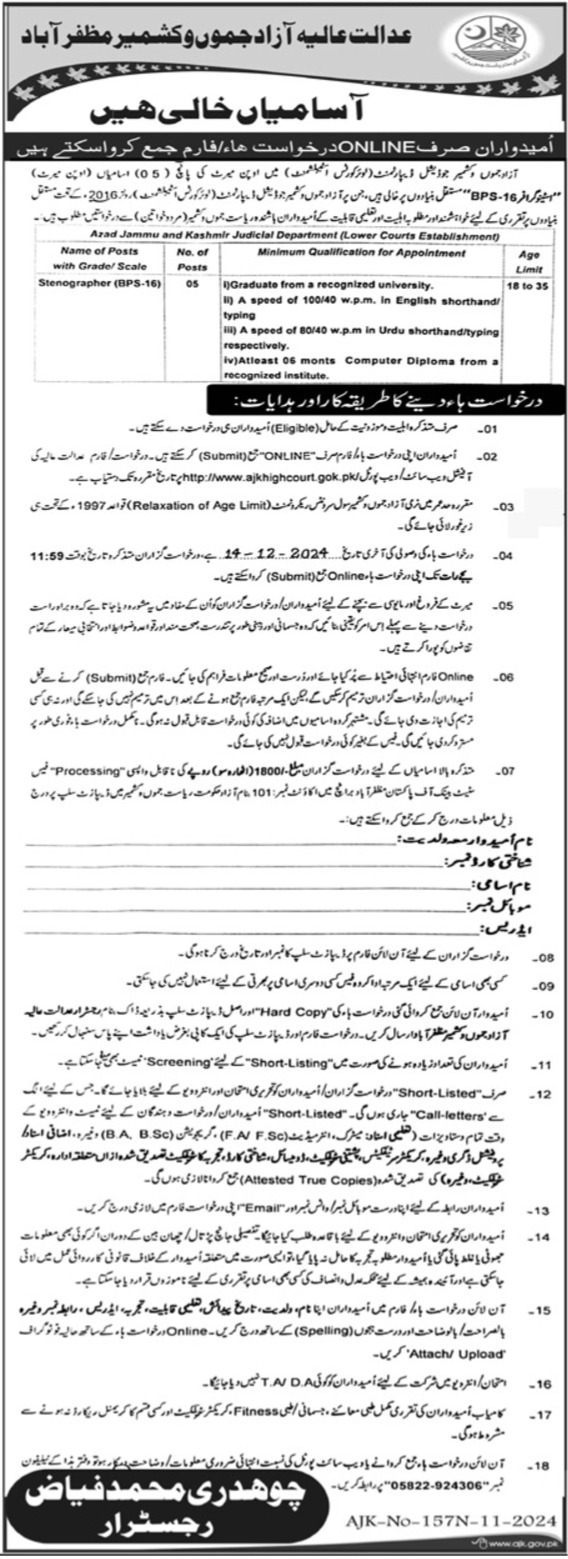 عدالت عالیہ آزاد جموں و کشمیر مظفر آباد
آسامیاں خالی ہیں
اُمیدواران صرف ONLINE درخواست ھاء/فارم جمع کرواسکتے ہیں
آزاد جموں و کشمیر جوڈیشل ڈیپارٹمنٹ (لوئر کورٹس اسٹیبلشمنٹ) میں اوپن میرٹ کی پانچ (05) اسامیاں (اوپن میرٹ)
"اسٹینوگرافر BPS-16" مستقل بنیادوں پر خالی ہیں، جن پر آزاد جموں و کشمیر جوڈیشل ڈیپارٹمنٹ (لوئر کورٹس اسٹیبلشمنٹ) رولز 2016ء کے تحت مستقل
بنیادوں پر تقرری کے لیئے خواہشمند اور مطلوبہ اہلیت اور تعلیمی قابلیت کے اُمیدواران باشندہ ریاست جموں و کشمیر (مرد و خواتین) سے درخواستیں مطلوب ہیں۔
Azad Jammu and Kashmir Judicial Department (Lower Courts Establishment)
Name of Posts with Grade/ Scale | No. of Posts | Minimum Qualification for Appointment | Age Limit
Stenographer (BPS-16) | 05 | i)Graduate from a recognized university. | 18 to 35
ii) A speed of 100/40 w.p.m. in English shorthand/
typing
iii) A speed of 80/40 w.p.m in Urdu shorthand/typing
respectively.
iv)Atleast 06 monts Computer Diploma from a
recognized institute.
درخواست ہاء دینے کا طریقہ کار اور ہدایات:
01۔ صرف متذکرہ اہلیت و موزونیت کے حامل (Eligible) اُمیدواران ہی درخواست دے سکتے ہیں۔
02۔ اُمیدواران اپنی درخواست ہاء/فارم صرف "ONLINE" جمع (Submit) کرسکتے ہیں۔ درخواست/فارم عدالت عالیہ کی
آفیشل ویب سائٹ/ویب پورٹل http://www.ajkhighcourt.gok.pk/ پر تاریخ مقررہ تک دستیاب ہے۔
03۔ مقررہ حد عمر میں نرمی آزاد جموں و کشمیر سول سرونٹس ریکروٹمنٹ (Relaxation of Age Limit) قواعد 1997ء کے تحت ہی
زیر غور لائی جائے گی۔
04۔ درخواست ہاء کی وصولی کی آخری تاریخ 14-12-2024 ہے، درخواست گزاران متذکرہ تاریخ بوقت 11:59
بجے رات تک اپنی درخواست ہاء Online جمع (Submit) کرواسکتے ہیں۔
05۔ میرٹ کے فروغ اور مایوسی سے بچنے کے لیئے اُمیدواران/درخواست گزاران کو اُن کے مفاد میں یہ مشورہ دیا جاتا ہے کہ وہ براہ راست
درخواست دینے سے پہلے اِس امر کو یقینی بنائیں کہ وہ جسمانی اور ذہنی طور پر تندرست، صحت مند اور قواعد و ضوابط اور انتخابی معیار کے تمام
تقاضوں کو پورا کرتے ہیں۔
06۔ Online فارم انتہائی احتیاط سے پُر کیا جائے اور دُرست اور صحیح معلومات فراہم کی جائیں۔ فارم جمع (Submit) کرنے سے قبل
اُمیدواران/درخواست گزاران ترمیم کرسکیں گے، لیکن ایک مرتبہ فارم جمع ہونے کے بعد اِس میں ترمیم نہیں کی جاسکے گی اور نہ ہی کسی
ترمیم کی اجازت دی جائے گی۔ مشتہر کردہ اسامیوں میں اضافہ کی کوئی درخواست قابل قبول نہ ہوگی۔ نامکمل درخواست ہا فوری طور پر
مسترد کردی جائیں گی۔ فیس کے بغیر کوئی درخواست قبول نہیں کی جائے گی۔
07۔ متذکرہ بالا اسامیاں کے لیئے درخواست گزاران مبلغ/-1800 (اٹھارہ سو) روپے کی ناقابل واپسی "Processing" فیس
سٹیٹ بینک آف پاکستان مظفر آباد برانچ میں اکاؤنٹ نمبر: 101 بنام آزاد حکومت ریاست جموں و کشمیر میں ڈیپازٹ سلپ پر درج
ذیل معلومات درج کرکے جمع کرواسکتے ہیں:۔
نام اُمیدوار معہ ولدیت:
شناختی کارڈ نمبر:
نام اسامی:
موبائل نمبر:
ایڈریس:
08۔ درخواست گزاران کے لیئے آن لائن فارم پر ڈیپازٹ سلپ کا نمبر اور تاریخ درج کرنا ہوگی۔
09۔ کسی بھی اسامی کے لیئے ایک مرتبہ ادا کردہ فیس کسی دوسری اسامی پر بھرتی کے لیئے استعمال نہیں کی جاسکتی۔
10۔ اُمیدوار آن لائن جمع کروائی گئی درخواست ہاء کی "Hard Copy" اور اصل ڈیپازٹ سلپ بذریعہ ڈاک بنام رجسٹرار عدالت عالیہ
آزاد جموں و کشمیر مظفر آباد ارسال کریں۔ درخواست فارم اور ڈیپازٹ سلپ کی ایک کاپی بغرض یادداشت اپنے پاس سنبھال کر رکھیں۔
11۔ اُمیدواران کی تعداد زیادہ ہونے کی صورت میں "Short-Listing" کے لیئے 'Screening' ٹیسٹ بھی لیا جاسکتا ہے۔
12۔ صرف "Short-Listed" درخواست گزاران/اُمیدواران کو تحریری امتحان اور انٹرویو کے لیئے بلایا جائے گا۔ جس کے لیئے الگ
سے "Call-letters" جاری ہوں گی۔ "Short-Listed" اُمیدواران/درخواست دہندگان کے لیئے ٹیسٹ و انٹرویو کے
وقت تمام دستاویزات (تعلیمی اسناد، میٹرک، انٹرمیڈیٹ (F.A/ F.Sc)، گریجویشن (B.A, B.Sc) وغیرہ، اضافی اسناد/
پروفیشنل ڈگری وغیرہ، کریکٹر سرٹیفکیٹس، پشتینی سرٹیفکیٹ، ڈومیسائل، شناختی کارڈ، تجربہ کا سرٹیفکیٹ تصدیق شدہ ازاں متعلقہ ادارہ، کریکٹر
سرٹیفکیٹ، وغیرہ) کی تصدیق شدہ (Attested True Copies) جمع کروانا لازمی ہوں گی۔
13۔ اُمیدواران رابطہ کے لیئے اپنا درست موبائل نمبر/واٹس نمبر اور "Email" اپنی درخواست فارم میں لازمی درج کریں۔
14۔ اُمیدواران کو تحریری امتحان و انٹرویو کے لیئے باقاعدہ طلب کیا جائیگا۔ تفصیلی جانچ پڑتال/چھان بین کے دوران اگر کوئی بھی معلومات
جھوٹی یا غلط پائی گئی یا اُمیدوار مطلوبہ تجربہ کا حامل نہ پایا گیا، تو ایسی صورت میں متعلقہ اُمیدوار کے خلاف قانونی کارروائی عمل میں لائی
جاسکتی ہے اور آئیندہ ہمیشہ کے لیئے محکمہ عدل و انصاف کی کسی بھی اسامی پر تقرری کے لیئے ناموزوں قرار دیا جاسکتا ہے۔
15۔ آن لائن درخواست ہاء/فارم میں اُمیدواران اپنا نام، ولدیت، تاریخ پیدائش، تعلیمی قابلیت، تجربہ، ایڈریس، رابطہ نمبر وغیرہ
بالصراحت/بالوضاحت اور درست ہجوں (Spelling) کے ساتھ درج کریں۔ Online درخواست ہاء کے ساتھ حالیہ فوٹوگراف
'Attach/ Upload' کریں۔
16۔ امتحان/انٹرویو میں شرکت کے لیئے اُمیدواران کو کوئی T.A/ D.A نہیں دیا جائیگا۔
17۔ کامیاب اُمیدواران کی تقرری مکمل طبی معائنے، جسمانی/طبی Fitness، کریکٹر سرٹیفکیٹ اور کسی قسم کا کریمنل ریکارڈ نہ ہونے سے
مشروط ہوگی۔
18۔ آن لائن درخواست ہاء جمع کروانے یا ویب سائٹ پورٹل کی نسبت انتہائی ضروری معلومات/وضاحت درکار ہو تو دفتر ہذا کے ٹیلیفون
نمبر "05822-924306" پر رابطہ کریں۔
چوھدری محمد فیاض
رجسٹرار
AJK-No-157N-11-2024
www.ajk.gov.pk